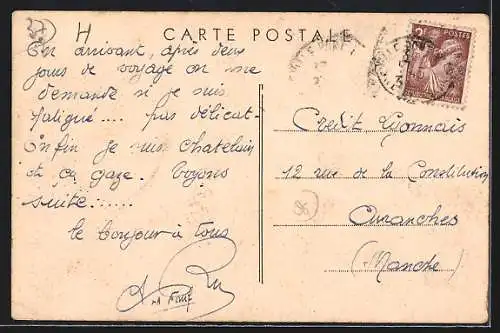 H
CARTE POSTALE
POSTES
En arrivant, après deux
jours de voyage on me
demande si je suis
fatigué.... pas délicat.
Enfin je suis chatelain
et ça gaze. Voyons
suite......
le bonjour à tous
Credit Lyonnais
12 rue de la Constitution
Avranches
(Manche)